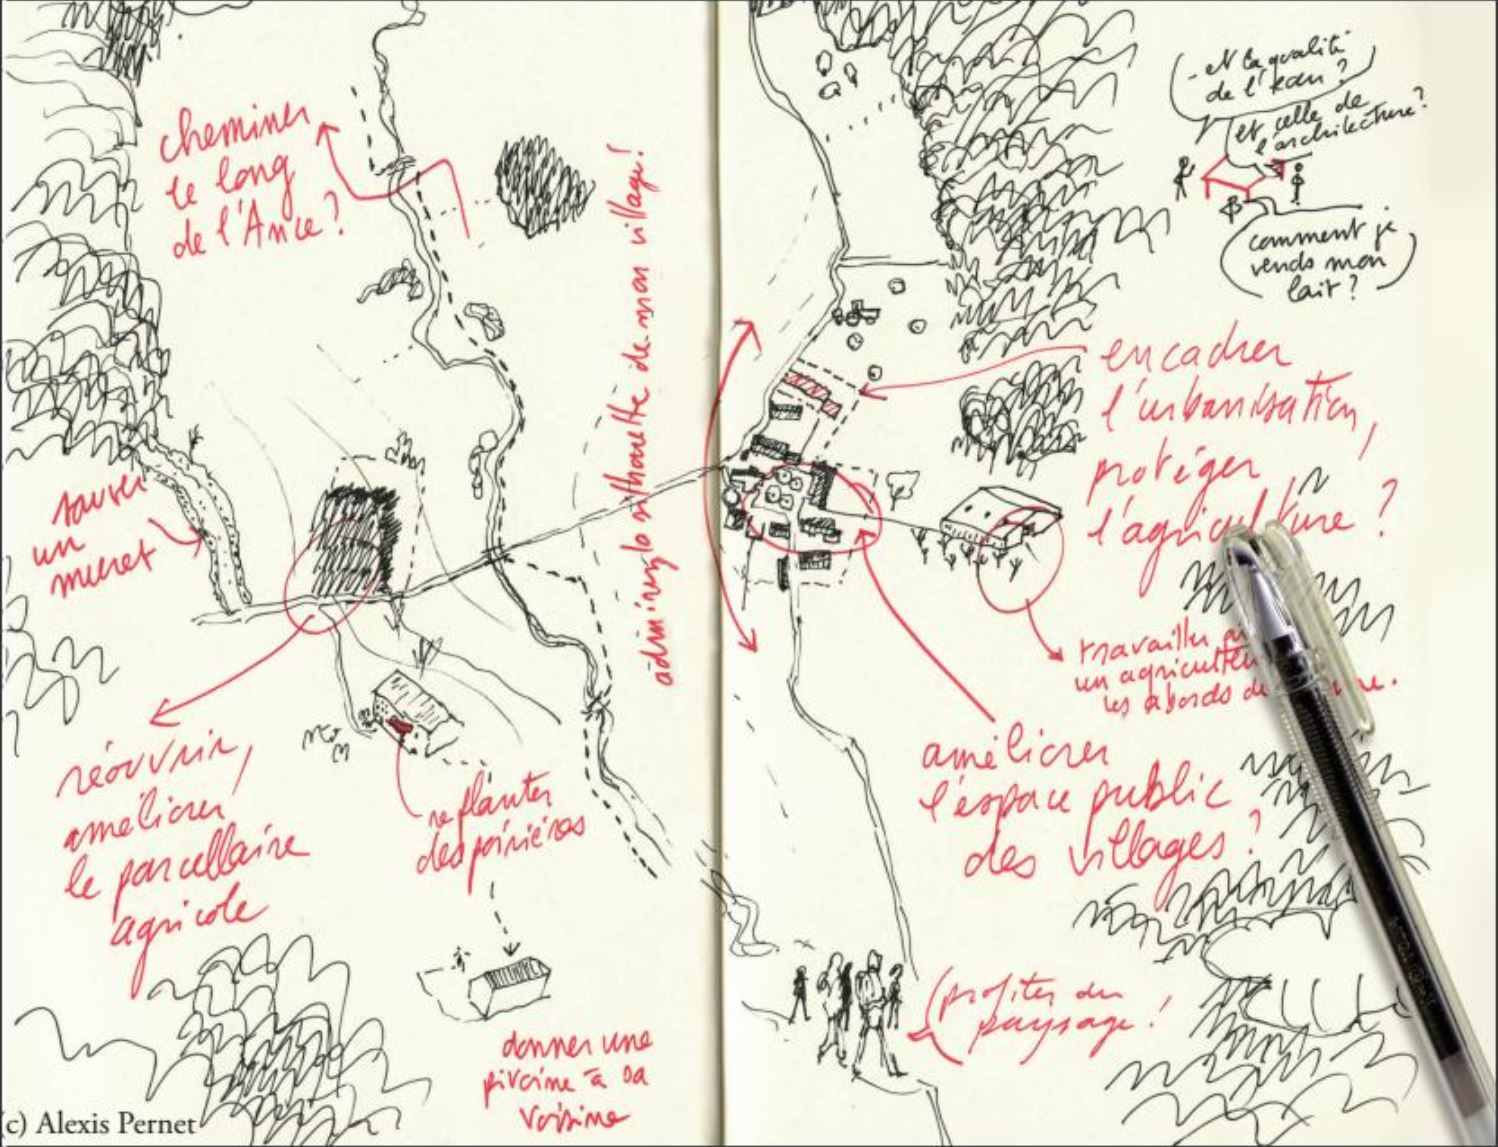 cheminer
le long
de l'Ance?
admirez la silhouette de mon village!
sauver
un
muret
réouvrir,
améliorer
le parcellaire
agricole
replanter
des poiriers
donner une
pivoine à sa
voisine
- et la qualité
de l'eau?
et celle de
l'architecture?
comment je
vends mon
lait?
encadrer
l'urbanisation,
protéger
l'agriculture?
travailler
un agriculteur
les abords de
améliorer
l'espace public
des villages?
profiter du
paysage!
(c) Alexis Pernet